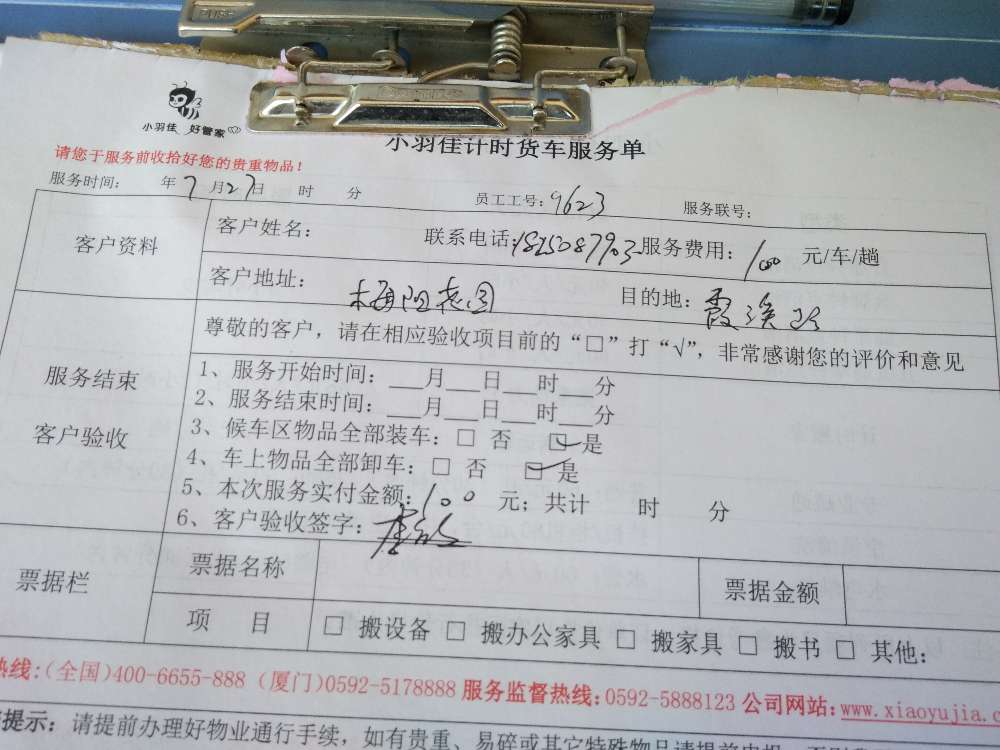 小羽佳 好管家
小羽佳计时货车服务单
请您于服务前收拾好您的贵重物品！
服务时间： 年7月27日 时 分 员工工号：9623 服务联号：
客户资料
客户姓名： 联系电话： 服务费用：100 元/车/趟
客户地址：梅阳花园 目的地：霞溪路
服务结束
客户验收
尊敬的客户，请在相应验收项目前的“□”打“√”，非常感谢您的评价和意见
1、服务开始时间：___月___日___时___分
2、服务结束时间：___月___日___时___分
3、候车区物品全部装车：□ 否 ☑是
4、车上物品全部卸车：□ 否 ☑是
5、本次服务实付金额：100 元；共计 时 分
6、客户验收签字：
票据栏
票据名称 票据金额
项 目 □ 搬设备 □ 搬办公家具 □ 搬家具 □ 搬书 □ 其他：
热线：(全国)400-6655-888 (厦门)0592-5178888 服务监督热线：0592-5888123 公司网站：www.xiaoyujia.c
提示：请提前办理好物业通行手续，如有贵重、易碎或其它特殊物品请提前